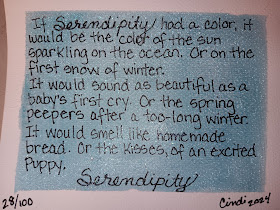 If Serendipity had a color, it
would be the color of the sun
sparkling on the ocean. Or on the
first snow of winter.
It would sound as beautiful as a
baby's first cry. Or the spring
peepers after a too-long winter.
It would smell like homemade
bread. Or the kisses, of an excited
Puppy.
Serendipity
28/100
Cindi 2024